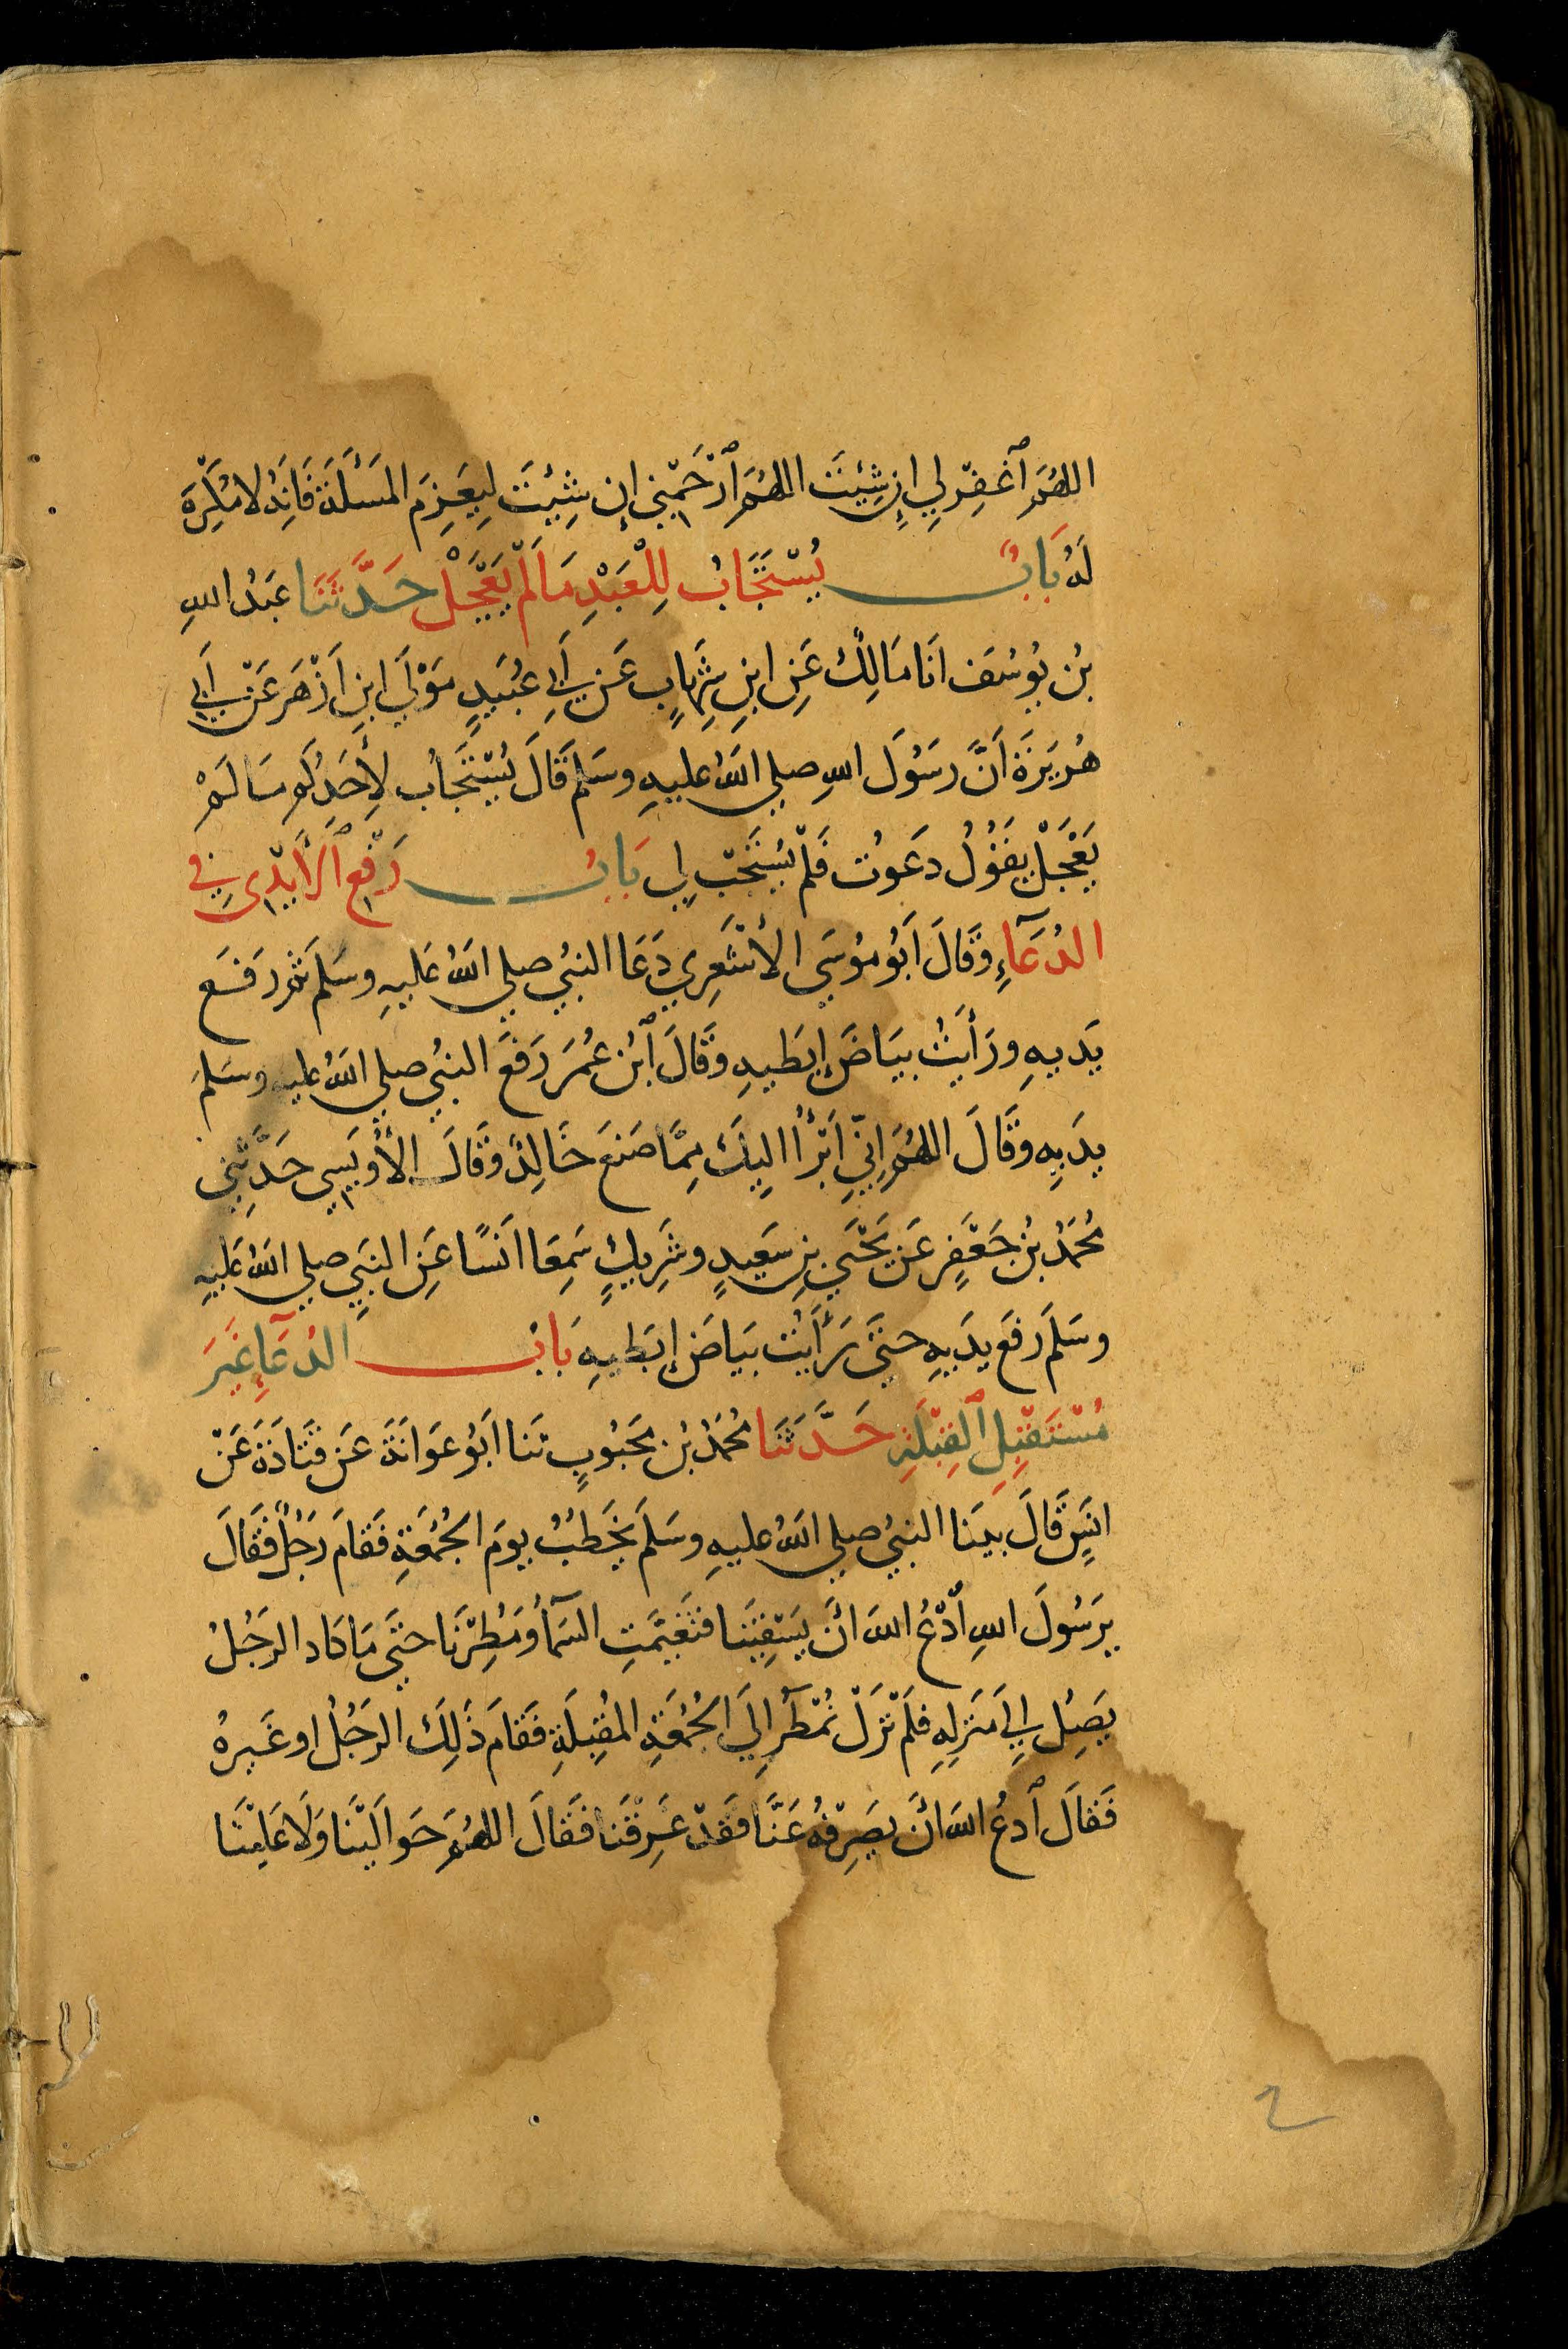 اللهُمَّ ٱغْفِرْ لِي اِنْ شِئْتَ اللهُمَّ ٱرْحَمْنِي إن شِئْتَ لِيَعْزِمَ المَسْأَلَةَ فَاِنَّهُ لا مُكْرِهَ
لَهُ بَابٌ يُسْتَجَابُ لِلْعَبْدِ مَا لَمْ يَعْجَلْ حَدَّثَنَا عَبْدُ اللهِ
بْنُ يُوسُفَ انَا مَالِكٌ عَنِ ابْنِ شِهَابٍ عَنْ اَبِي عُبَيْدٍ مَوْلَى ابْنِ اَزْهَرَ عَنْ اَبِي
هُرَيْرَةَ اَنَّ رَسُولَ اللهِ صلى اللهُ عليهِ وسَلم قَالَ يُسْتَجَابُ لِأَحَدِكُم مَا لَمْ
يَعْجَلْ يَقُولُ دَعَوْت فَلَمْ يُسْتَجَبْ لِي بَابُ رَفْعِ ٱلْأَيْدِي فِي
الدُعَآءِ وَقَالَ اَبُو مُوسَى الأَشْعَرِي دَعَا النبيُ صلى اللهُ عَليهِ وسَلم ثم رَفَعَ
يَدَيهِ ورَأَيْتُ بيَاضَ إبْطَيهِ وَقَالَ ٱبْنُ عُمَرَ رَفَعَ النبيُ صلى اللهُ عليه وسَلمَ
يدَيهِ وَقَالَ اللهُمَّ اِنِّي اَبْرَأُ اليكَ مِمَّا صَنَعَ خَالِدٌ وَقَالَ الأُوَيْسِي حَدَّثَنِي
مُحَمَّدُ بْنُ جَعْفَرٍ عَنْ يَحْيَى بنِ سَعِيدٍ وشَرِيكٍ سَمِعَا انَسًا عَنِ النبِيِ صلى اللهُ عَليهِ
وسَلَمَ رَفَعَ يدَيهِ حتىَ رَأَيْت بيَاضَ إبْطَيهِ بَابُ الدُعَآءِ غَيْرَ
مُسْتَقْبِلِ ٱلْقِبْلَةِ حَدَّثَنَا مُحَمَّدُ بْنُ مَحْبُوبٍ ثنا اَبُو عَوَانَةَ عَنْ قَتَادَةَ عَنْ
انَسٍ قَالَ بيْنَا النبيُ صلى اللهُ عليهِ وسَلمَ يَخْطُبُ يومَ الجُمُعَةِ فَقَامَ رَجُلٌ فَقَالَ
يرَسُولَ اللهِ ٱدْعُ اللهَ اَنْ يَسْقِيَنَا فتَغَيَّمَتِ السَمَآُ وَمُطِرْنَا حتىَ مَا كَاد الرَجُلُ
يَصِلُ اِلىَ مَنْزِلِهِ فلَمْ تَزَلْ تُمْطَرُ اِلَى الجُمُعَةِ المُقْبِلَةِ فَقَامَ ذَلِكَ الرَجُلُ او غَيرُهُ
فَقَالَ ٱدعُ اللهَ اَنْ يصَرِفَهُ عَنَّا فقَدْ غَرِقْنَا فَقَالَ اللهُمَّ حَوَالَيْنَا وَلَا عَلَيْنَا